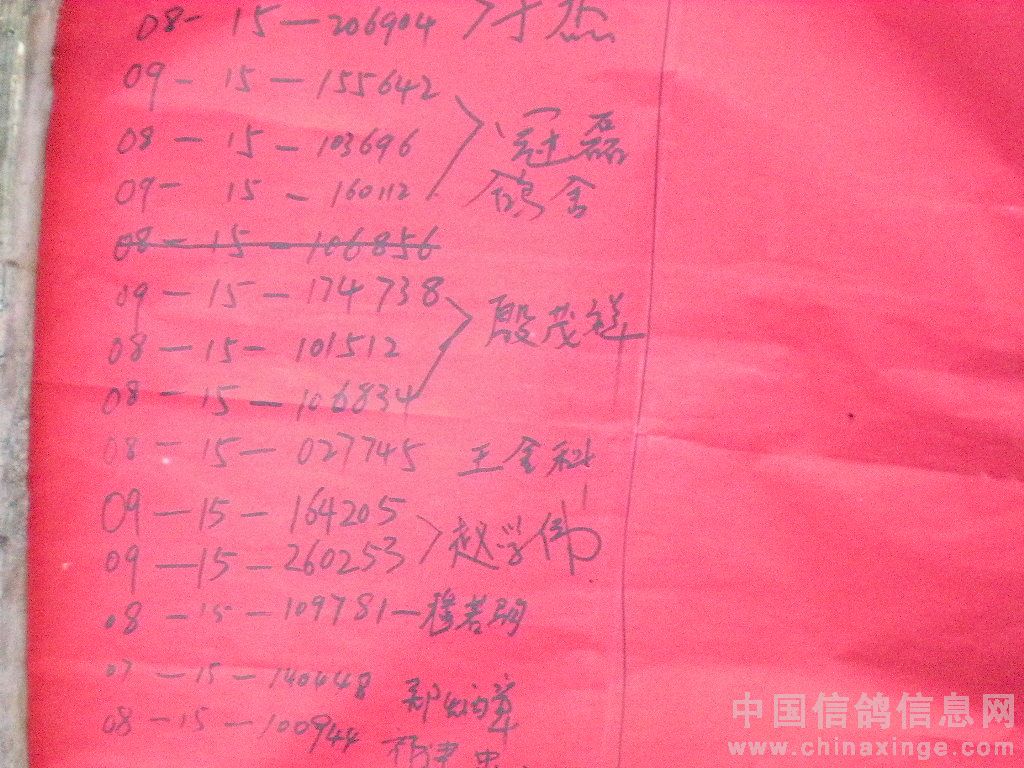 08-15-206904 于杰
09-15-155642
08-15-103696 冠磊
09-15-160112 鸽舍
08-15-106856
09-15-174738 殷茂祥
08-15-101512
08-15-106834
08-15-027745 王金科
09-15-164205
09-15-260253 赵学伟
08-15-109781-穆若
07-15-140448 郑
08-15-100944
中国信鸽信息网
www.chinaxinge.com